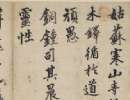 姑蘇寒山寺
木鐸循於道
頑愚
銅鐘司其晨
靈性